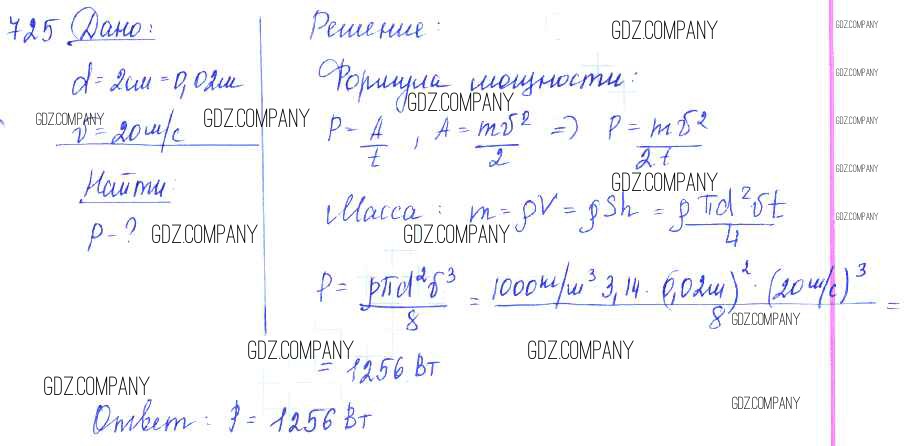 725 Дано:
d = 2см = 0,02м
v = 20 м/с
Найти:
P - ?
Решение:
Формула мощности:
P = A/t , A = mv²/2 => P = mv²/2t
Масса: m = ρV = ρSh = ρ πd²vt/4
P = ρπd²v³/8 = 1000 кг/м³ 3,14 · 0,02м)² · (20 м/с)³/8 =
= 1256 Вт
Ответ: P = 1256 Вт
GDZ.COMPANY
GDZ.COMPANY
GDZ.COMPANY
GDZ.COMPANY
GDZ.COMPANY
GDZ.COMPANY
GDZ.COMPANY
GDZ.COMPANY
GDZ.COMPANY
GDZ.COMPANY
GDZ.COMPANY
GDZ.COMPANY
GDZ.COMPANY
GDZ.COMPANY
GDZ.COMPANY
GDZ.COMPANY